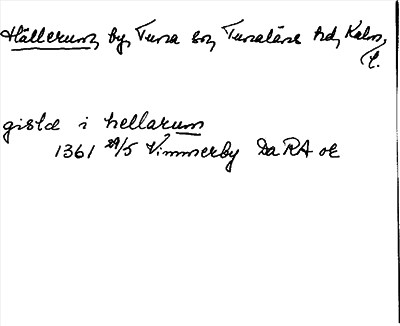 Hällerum, by, Tuna sn, Tunaläns hd, Kalm.
l.
gisle i hellarum
1361 29/5 Vimmerby Da RA or